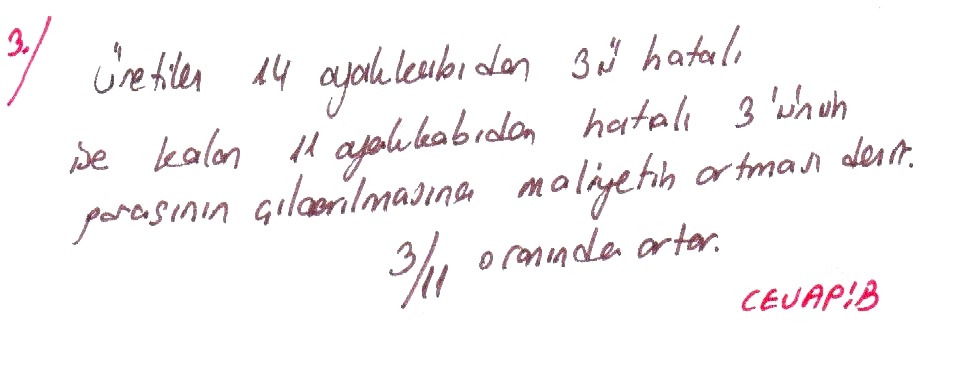 3./ Üretilen 14 ayakkabıdan 3'ü hatalı
ise kalan 11 ayakkabıdan hatalı 3'ünün
parasının çıkarılmasına maliyetin artması denir.
3/11 oranında artar.
CEVAP:B